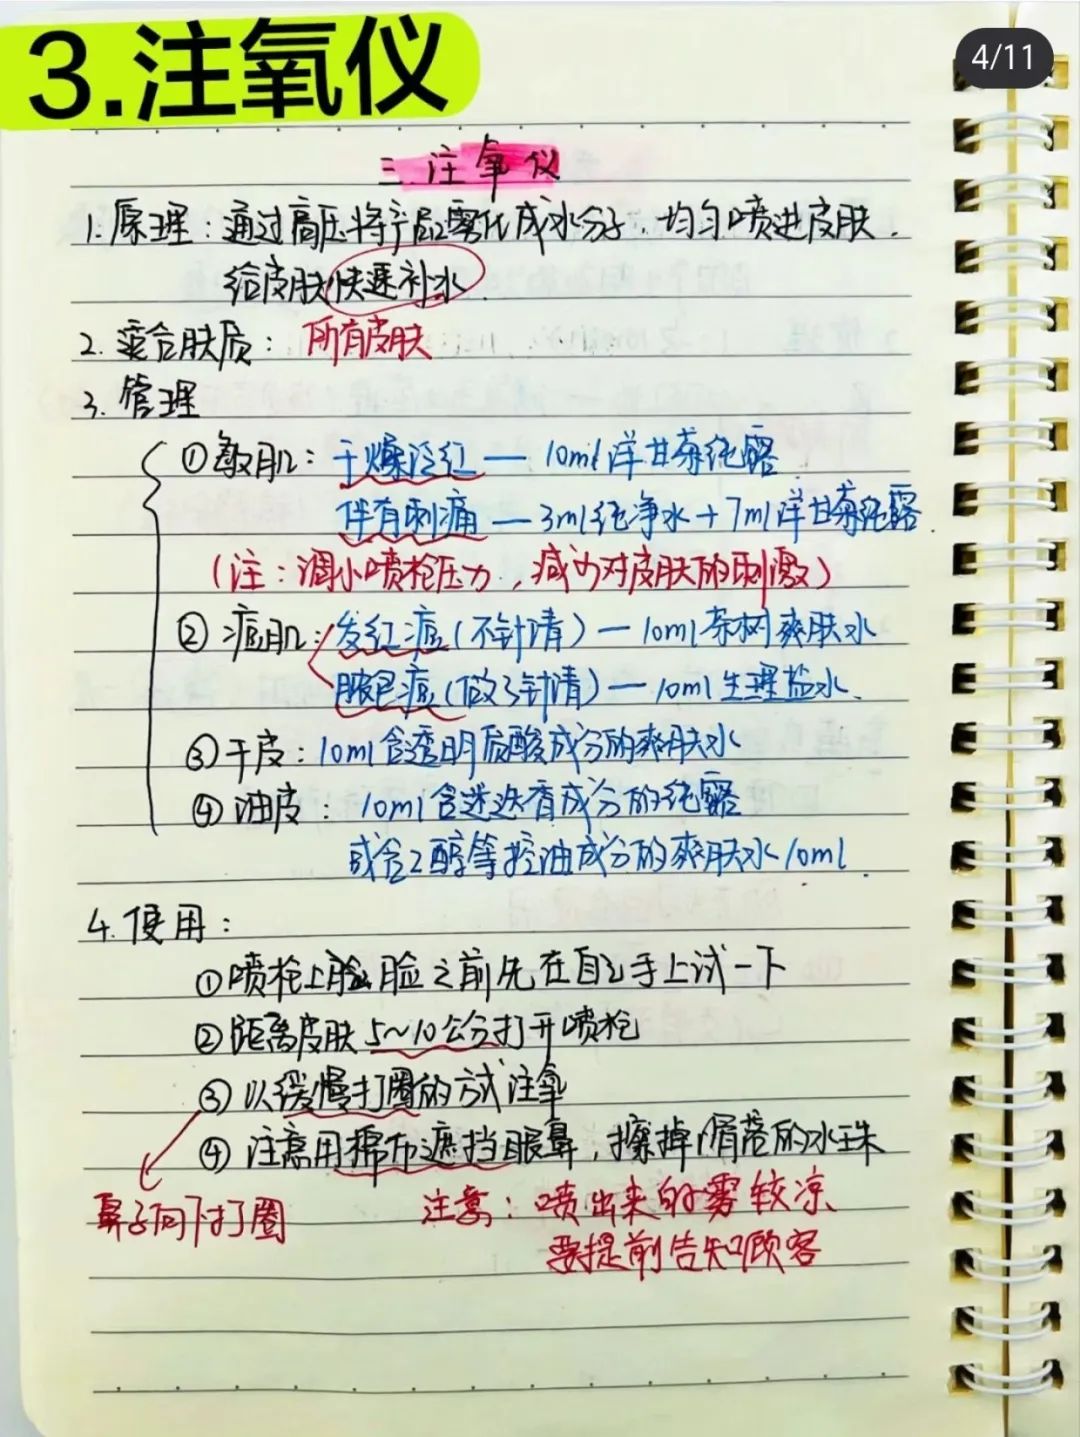 3.注氧仪
4/11
三 注氧仪
1.原理：通过高压将产品雾化成水分子，均匀喷进皮肤，
给皮肤快速补水.
2.适合肤质：所有皮肤
3.管理
①敏肌：干燥泛红—10ml洋甘菊纯露
伴有刺痛—3ml纯净水+7ml洋甘菊纯露.
(注：调小喷枪压力，减少对皮肤的刺激)
②痘肌：发红痘(不针清)—10ml茶树爽肤水
脓包痘(做了针清)—10ml生理盐水.
③干皮：10ml含透明质酸成分的爽肤水
④油皮：10ml含迷迭香成分的纯露
或含乙醇等控油成分的爽肤水10ml.
4.使用：
①喷枪上脸 脸之前先在自己手上试一下
②距离皮肤5~10公分打开喷枪
③以缓慢打圈的方式注氧
④注意用棉布遮挡眼鼻，擦掉滑落的水珠
鼻子向下打圈
注意：喷出来的雾较凉
要提前告知顾客